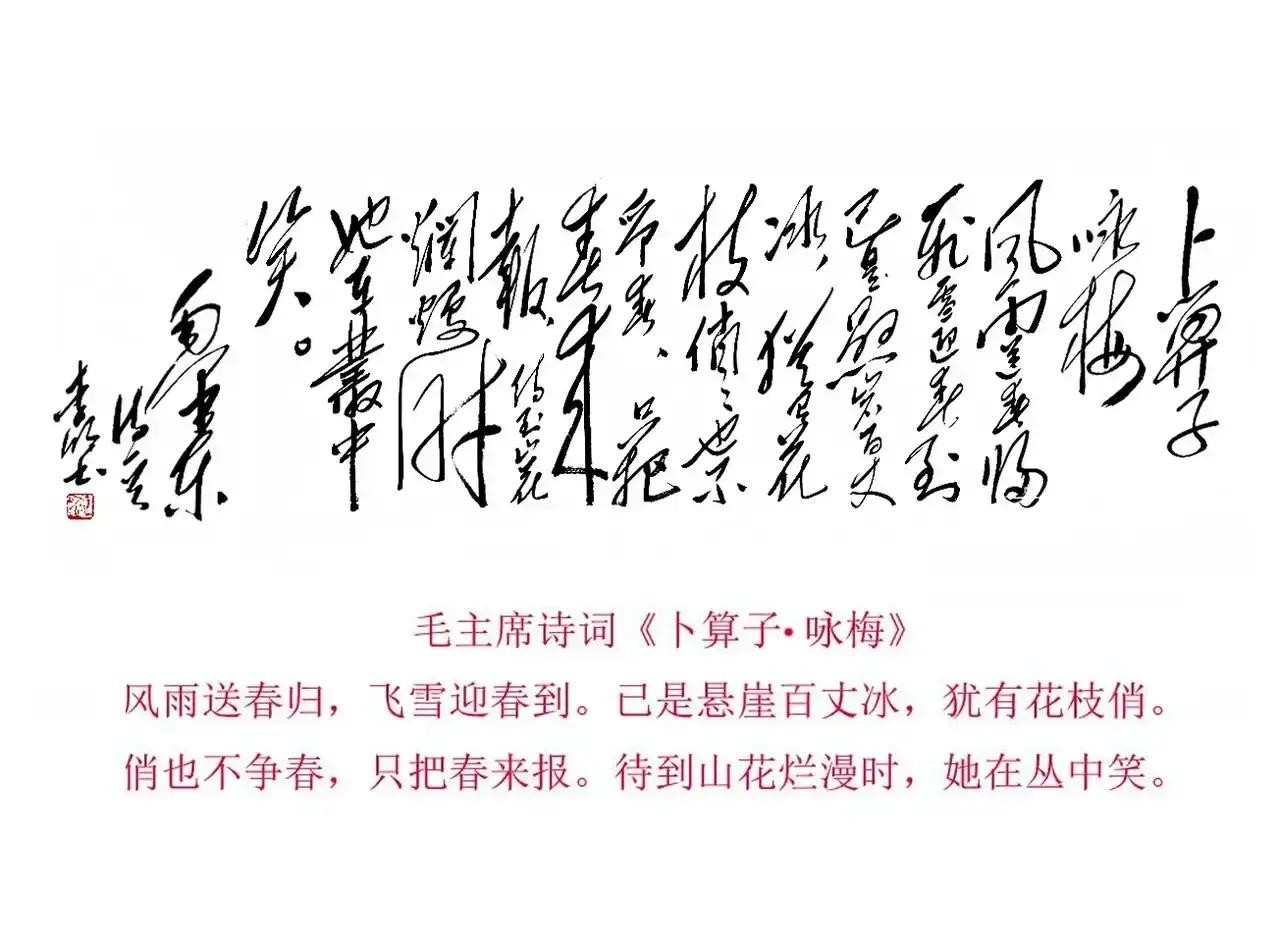 卜算子
咏梅
风雨送春归
飞雪迎春到
已是悬崖百丈
冰，犹有花
枝俏俏也不
争春、只把
春来
報、待到山花
爛熳时
她在叢中
笑。
毛泽东
毛主席诗词《卜算子·咏梅》
风雨送春归，飞雪迎春到。己是悬崖百丈冰，犹有花枝俏。
俏也不争春，只把春来报。待到山花烂漫时，她在丛中笑。